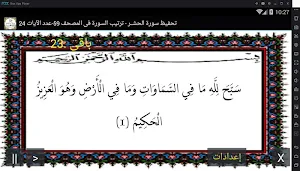 10:27
تحفيظ سورة الحشر - ترتيب السورة في المصحف 59-عدد الآيات 24
باقي: 23
بسم الله الرحمن الرحيم
سَبَّحَ لِلَّهِ مَا فِي السَّمَاوَاتِ وَمَا فِي الْأَرْضِ وَهُوَ الْعَزِيزُ
الْحَكِيمُ (1)
|| > إعدادات X